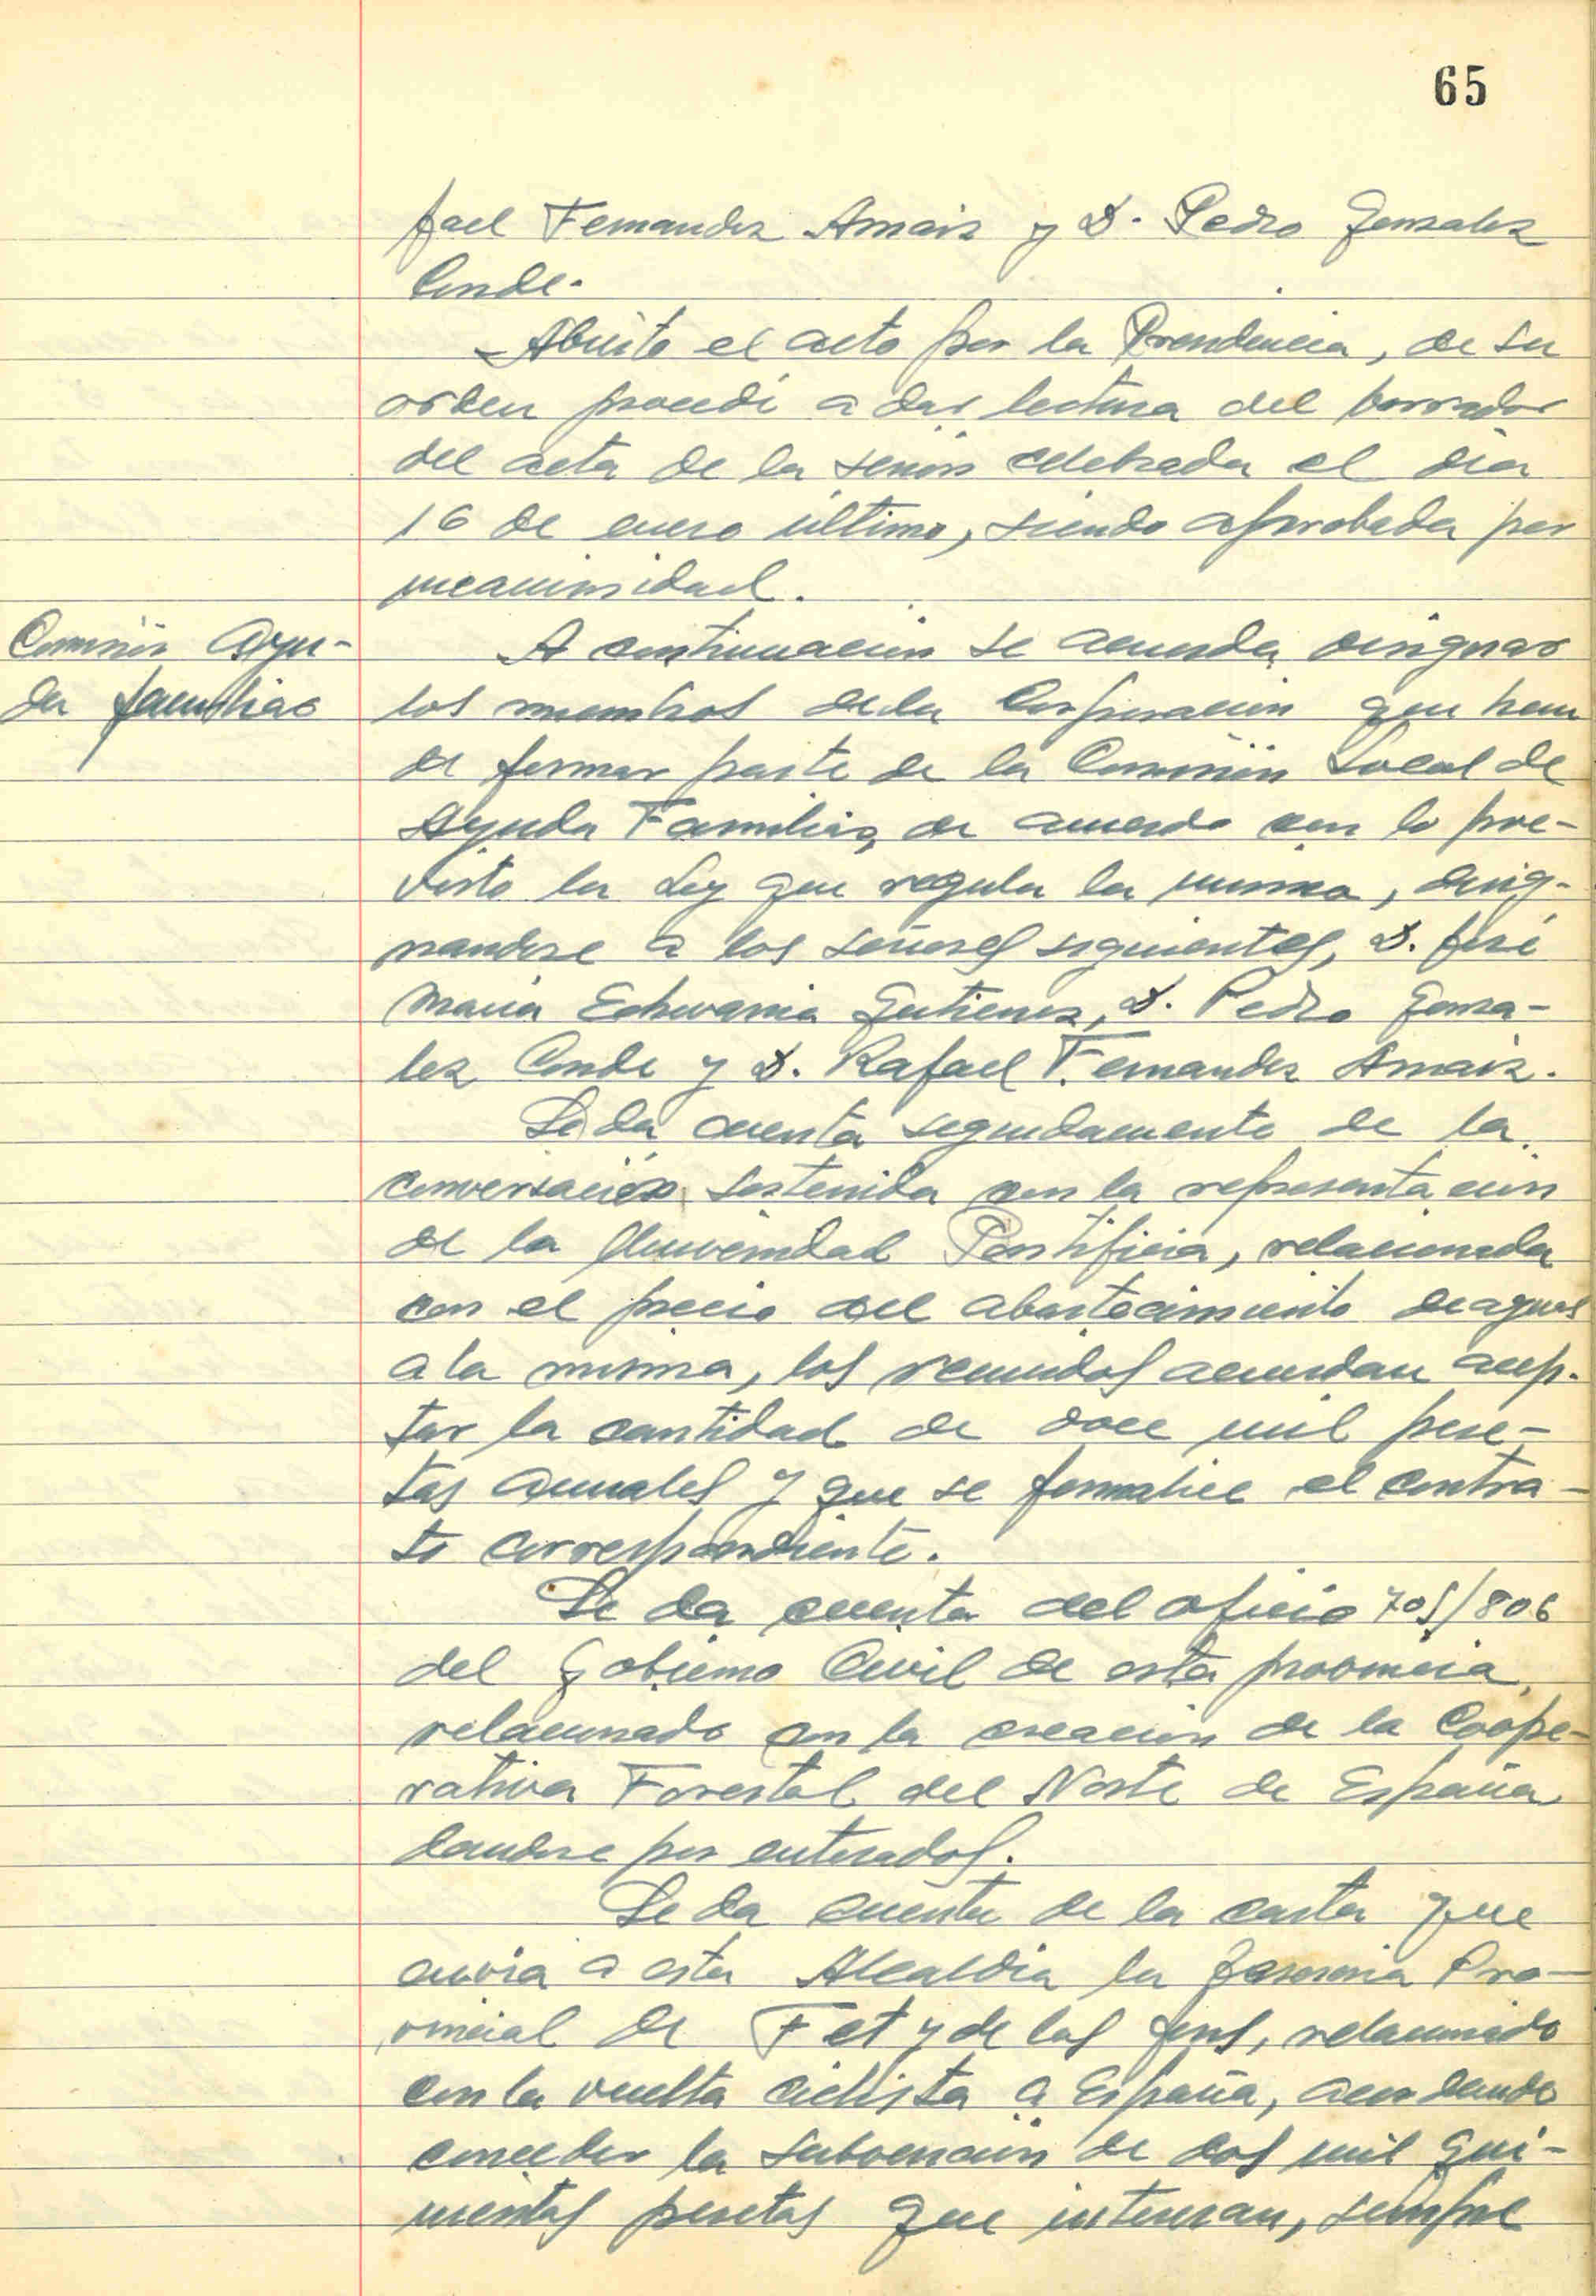 65
fael Fernandez Arnaiz y D. Pedro Gonzalez
Conde.
Abierto el acto por la Presidencia, de su
orden procedi a dar lectura del borrador
del acta de la sesión celebrada el dia
16 de enero último, siendo aprobada por
unanimidad.
Comisión Ayu-
da familiar
A continuacion se acuerda designar
los miembros de la Corporacion que han
de formar parte de la Comisión Local de
Ayuda Familiar, de acuerdo con lo pre-
visto la Ley que regula la misma, desig-
nandose a los señores siguientes, D. José
Maria Echevarria Gutierrez, D. Pedro Gonza-
lez Conde y D. Rafael Fernandez Arnaiz.
Se da cuenta seguidamente de la
conversación sostenida con la representacion
de la Universidad Pontificia, relacionada
con el precio del abastecimiento de aguas
a la misma, los reunidos acuerdan acep-
tar la cantidad de doce mil pese-
tas anuales y que se formalice el contra-
to correspondiente.
Se da cuenta del oficio 705/806
del Gobierno Civil de esta provincia,
relacionado con la creacion de la Coope-
rativa Forestal del Norte de España
dandose por enterados.
Se da cuenta de la carta que
envia a esta Alcaldia la Provincial Pro-
vincial de F et y de las Jons, relacionado
con la vuelta ciclista a España, acordando
conceder la subvencion de dos mil qui-
nientas pesetas que interesan, siempre